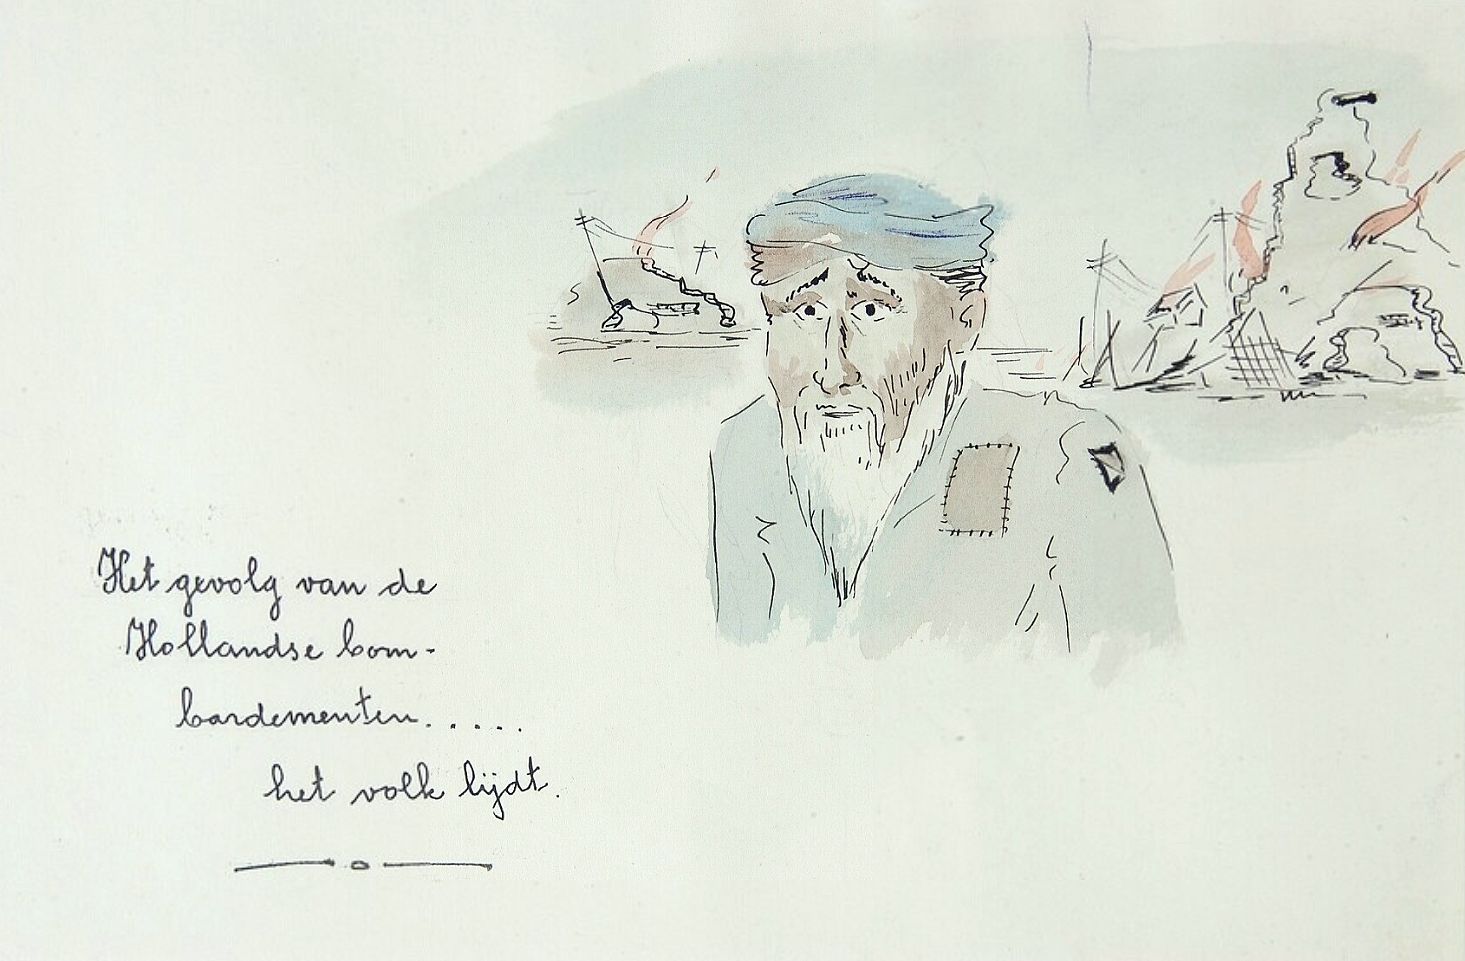 Het gevolg van de
Hollandse bom-
bardementen.....
het volk lijdt.